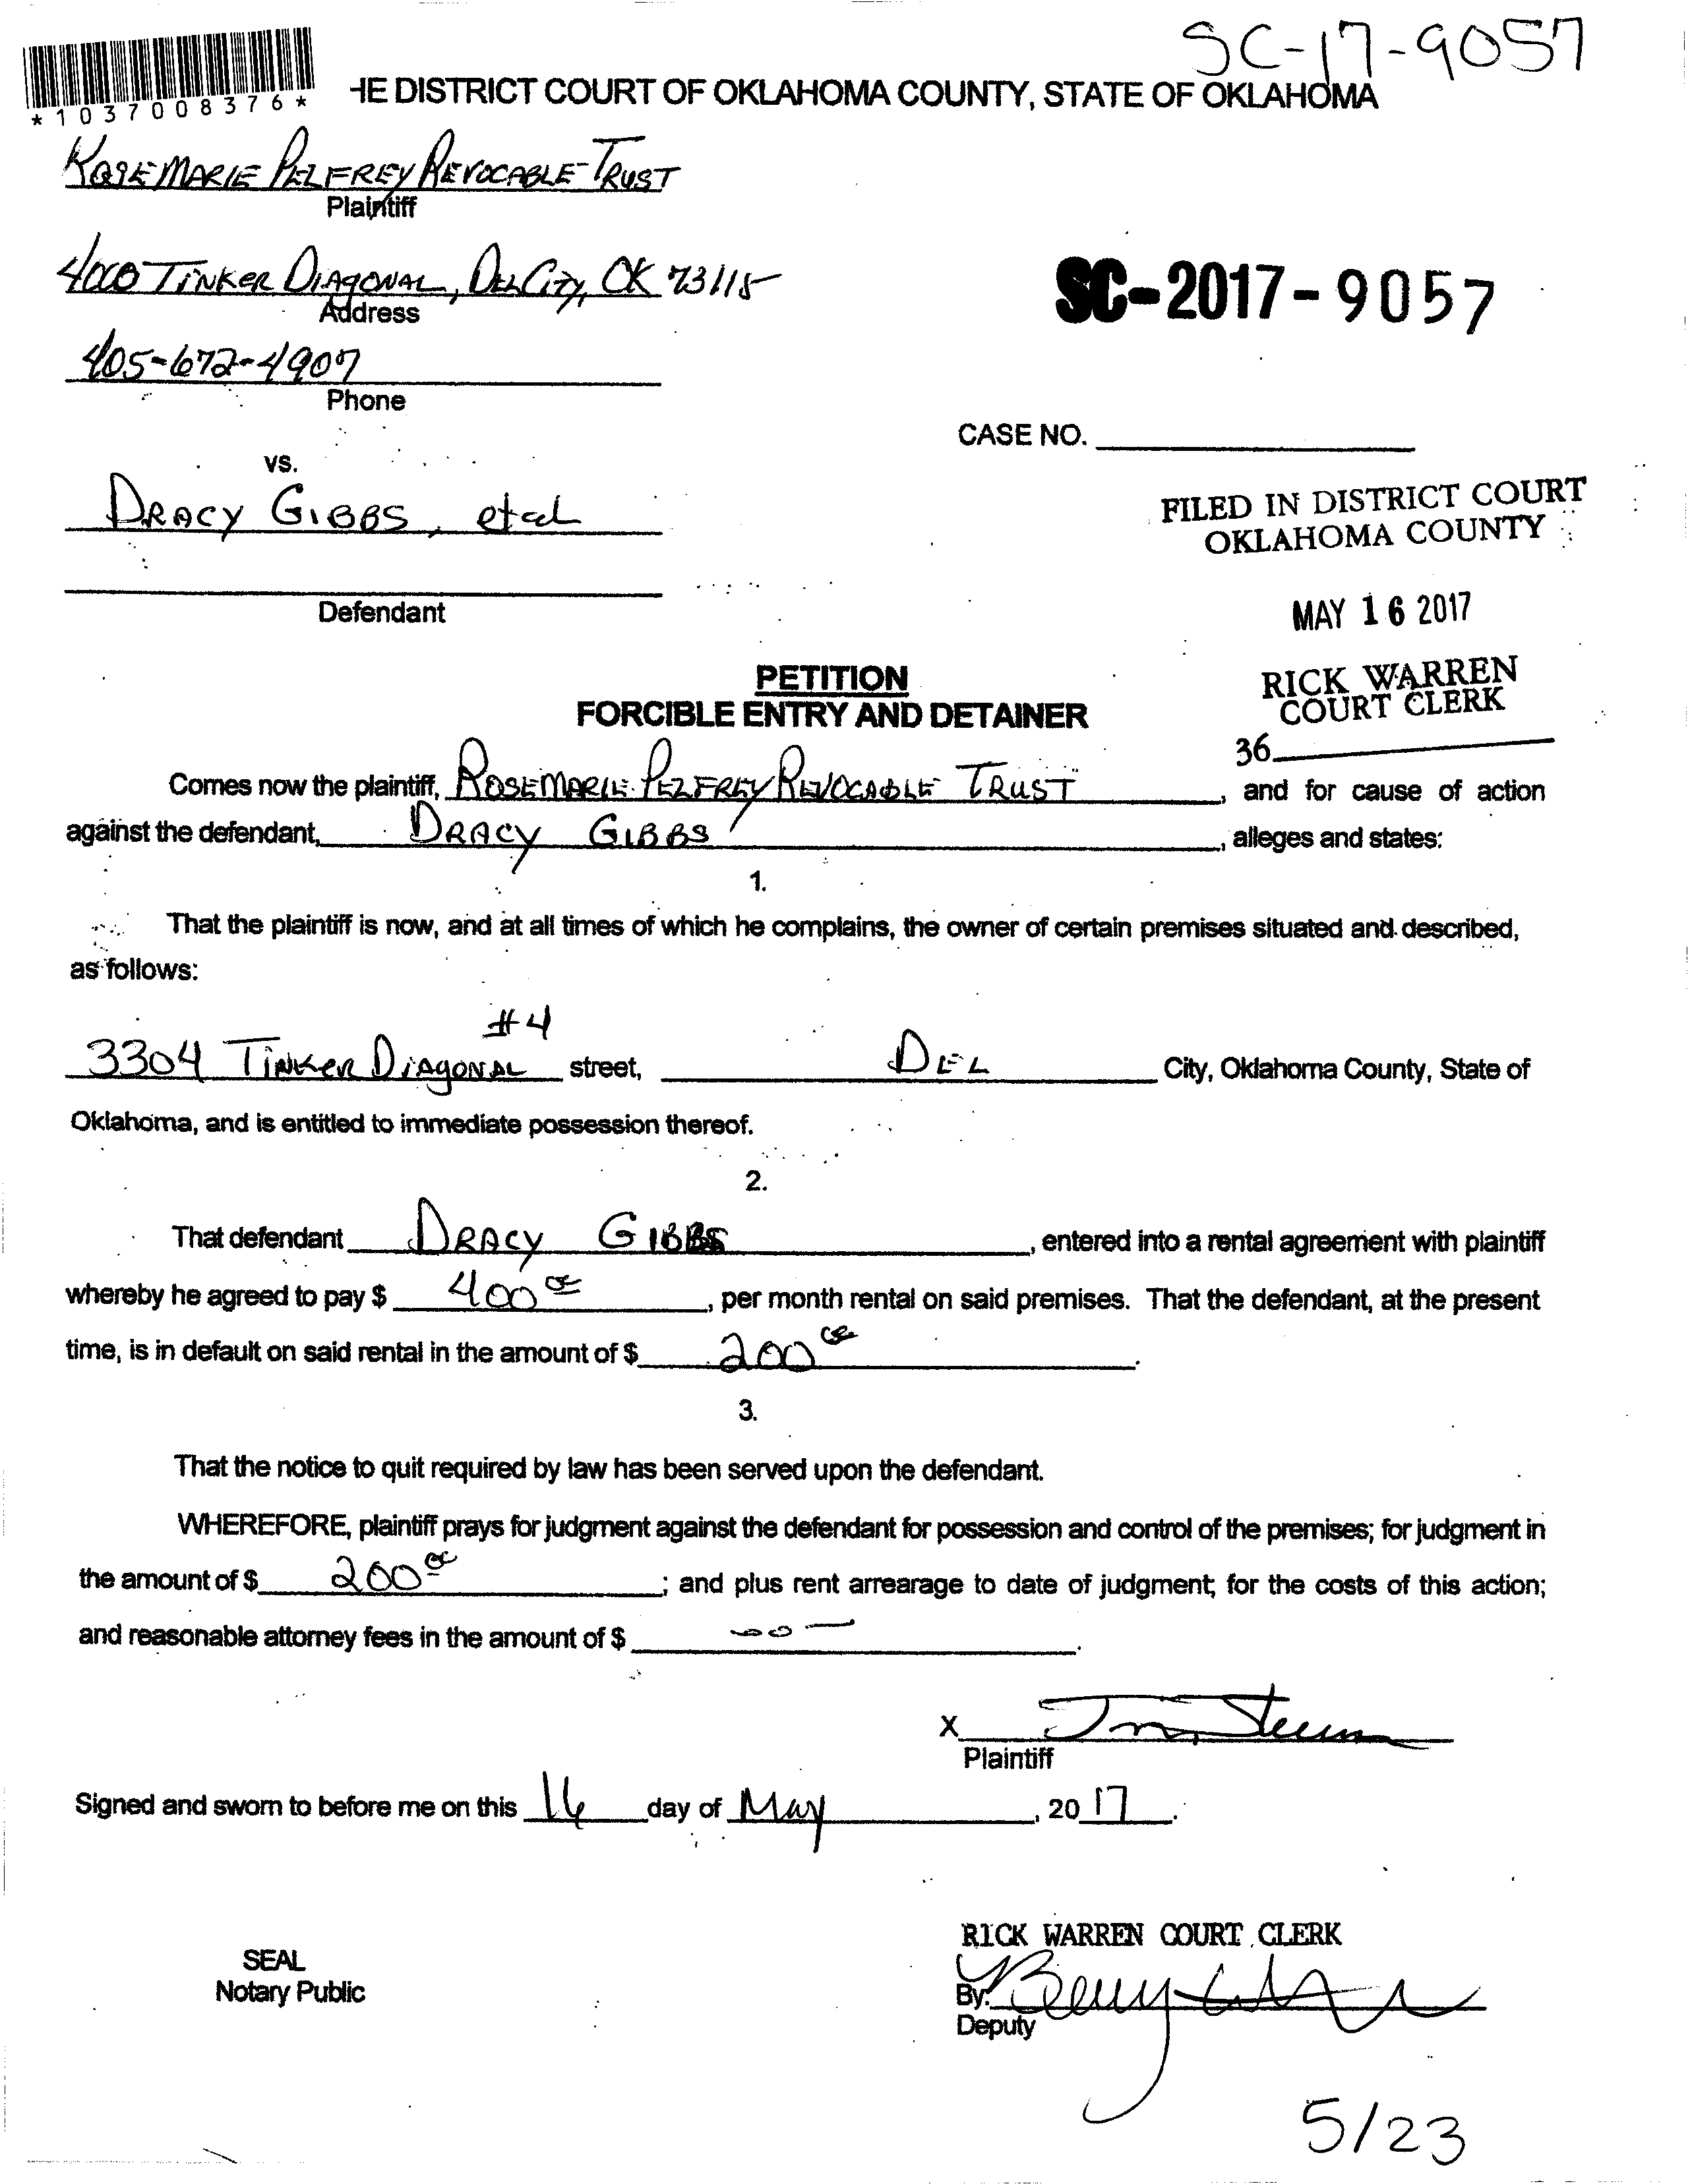 SC-17-9057
*1037008376*
HE DISTRICT COURT OF OKLAHOMA COUNTY, STATE OF OKLAHOMA
ROSEMARIE PELFREY REVOCABLE TRUST
Plaintiff
4000 TINKER DIAGONAL, DEL CITY, OK 73115
Address
SC-2017-9057
405-672-4907
Phone
CASE NO.
vs.
DRACY GIBBS, et al
FILED IN DISTRICT COURT
OKLAHOMA COUNTY
Defendant
MAY 16 2017
PETITION
FORCIBLE ENTRY AND DETAINER
RICK WARREN
COURT CLERK
36
Comes now the plaintiff, ROSEMARIE PELFREY REVOCABLE TRUST, and for cause of action
against the defendant, DRACY GIBBS, alleges and states:
1.
That the plaintiff is now, and at all times of which he complains, the owner of certain premises situated and described,
as follows:
#4
3304 TINKER DIAGONAL street, DEL City, Oklahoma County, State of
Oklahoma, and is entitled to immediate possession thereof.
2.
That defendant DRACY GIBBS, entered into a rental agreement with plaintiff
whereby he agreed to pay $ 400 00, per month rental on said premises. That the defendant, at the present
time, is in default on said rental in the amount of $ 200 00.
3.
That the notice to quit required by law has been served upon the defendant.
WHEREFORE, plaintiff prays for judgment against the defendant for possession and control of the premises; for judgment in
the amount of $ 200 00; and plus rent arrearage to date of judgment; for the costs of this action;
and reasonable attorney fees in the amount of $ 00 —.
X
Plaintiff
Signed and sworn to before me on this 16 day of May, 2017.
RICK WARREN COURT CLERK
SEAL
Notary Public
By:
Deputy
5/23